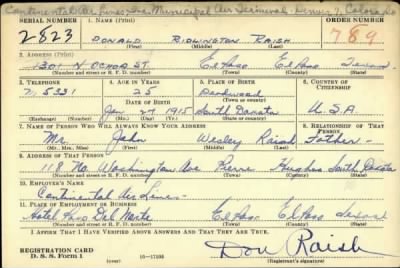 Continental Air Lines, Inc. Municipal Air Terminal - Denver 7, Colorado
SERIAL NUMBER 1. NAME (Print) ORDER NUMBER
2823 DONALD RIDLINGTON RAISH 789
(First) (Middle) (Last)
2. ADDRESS (Print)
1301 N OCHOA ST. El Paso El Paso Texas
(Number and street or R. F. D. number) (Town) (County) (State)
3. TELEPHONE 4. AGE IN YEARS 5. PLACE OF BIRTH 6. COUNTRY OF CITIZENSHIP
25 Deadwood
5331 DATE OF BIRTH (Town or county)
Jan 1915 South Dakota U.S.A.
(Exchange) (Number) (Mo.) (Day) (Yr.) (State or country)
7. NAME OF PERSON WHO WILL ALWAYS KNOW YOUR ADDRESS 8. RELATIONSHIP OF THAT PERSON
Mr. John Wesley Raish Father
(Mr., Mrs., Miss) (First) (Middle) (Last)
9. ADDRESS OF THAT PERSON
118 No Washington Ave Pierre Hughes South Dakota
(Number and street or R. F. D. number) (Town) (County) (State)
10. EMPLOYER'S NAME
Continental Air Lines
11. PLACE OF EMPLOYMENT OR BUSINESS
Hotel Paso Del Norte El Paso El Paso Texas
(Number and street or R. F. D. number) (Town) (County) (State)
I AFFIRM THAT I HAVE VERIFIED ABOVE ANSWERS AND THAT THEY ARE TRUE.
REGISTRATION CARD
D. S. S. Form 1 (over) 16-17105 Don Raish
(Registrant's signature)